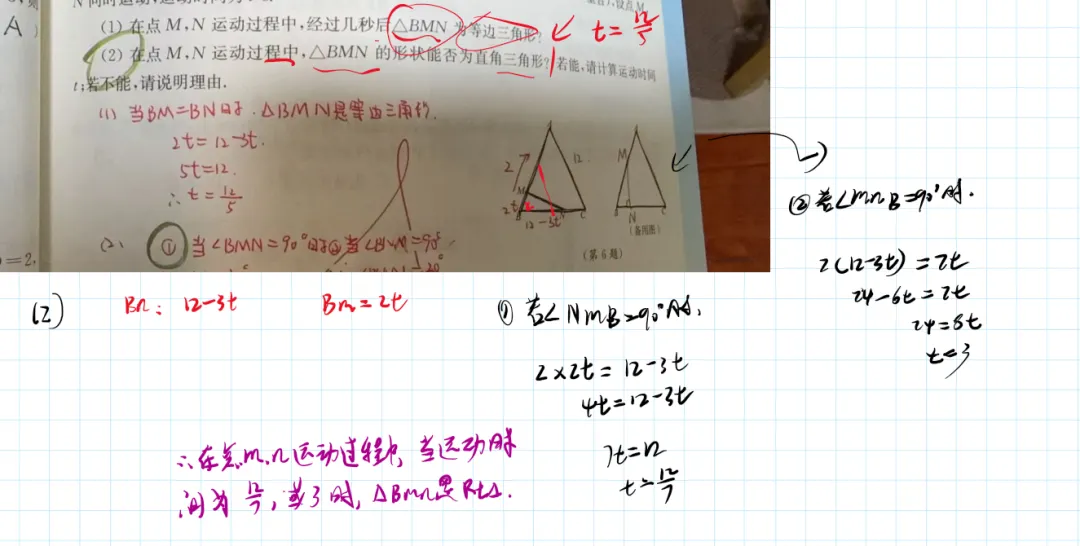 (1) 在点M、N运动过程中,经过几秒后△BMN为等边三角形?
t=12/5
(2) 在点M、N运动过程中,△BMN的形状能否为直角三角形?若能,请计算运动时间
t;若不能,请说明理由.
(1) 当BM=BN时.△BMN是等边三角形.
2t=12-3t.
5t=12.
∴t=12/5
(2) ①当∠BMN=90°时②当∠BNM=90°
A
=2.
2
12
M
2t
B
N
C
12-3t
M
N
(备用图)
(第6题)
②若∠MNB=90°时.
2(12-3t)=2t
24-6t=2t
24=8t
t=3
(2) Bn: 12-3t Bm=2t
①若∠NmB=90°时,
2×2t=12-3t
4t=12-3t
7t=12
t=12/7
∴在点m.n运动过程中,当运动时
间为12/7,或3时,△Bmn是Rt△.